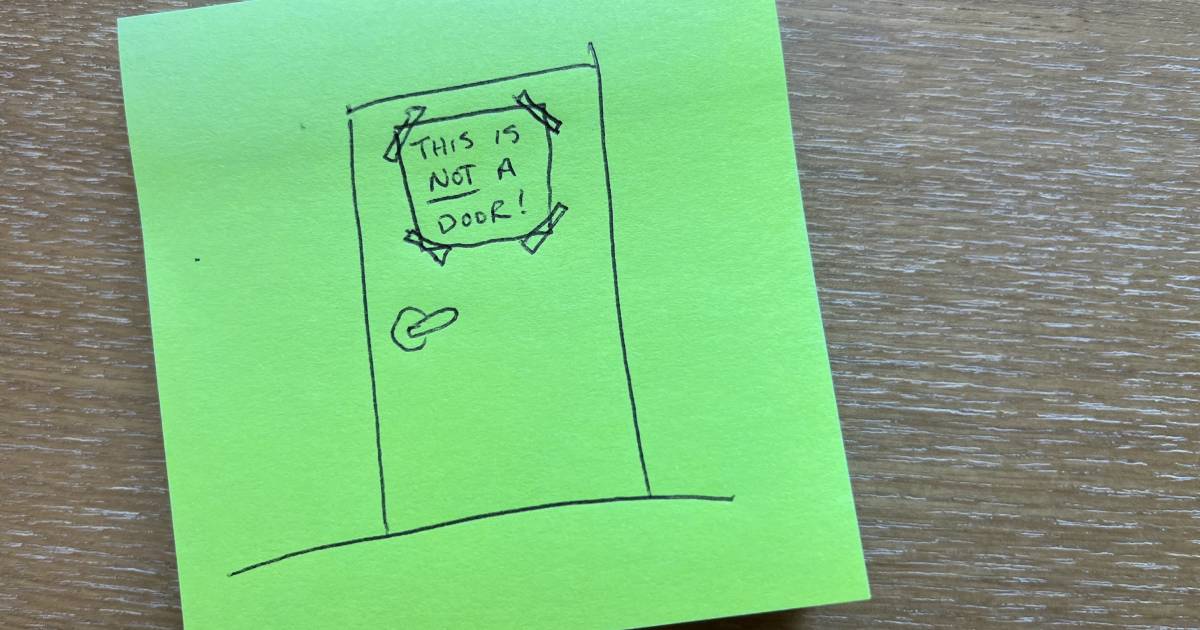 THIS IS
NOT A
DOOR!